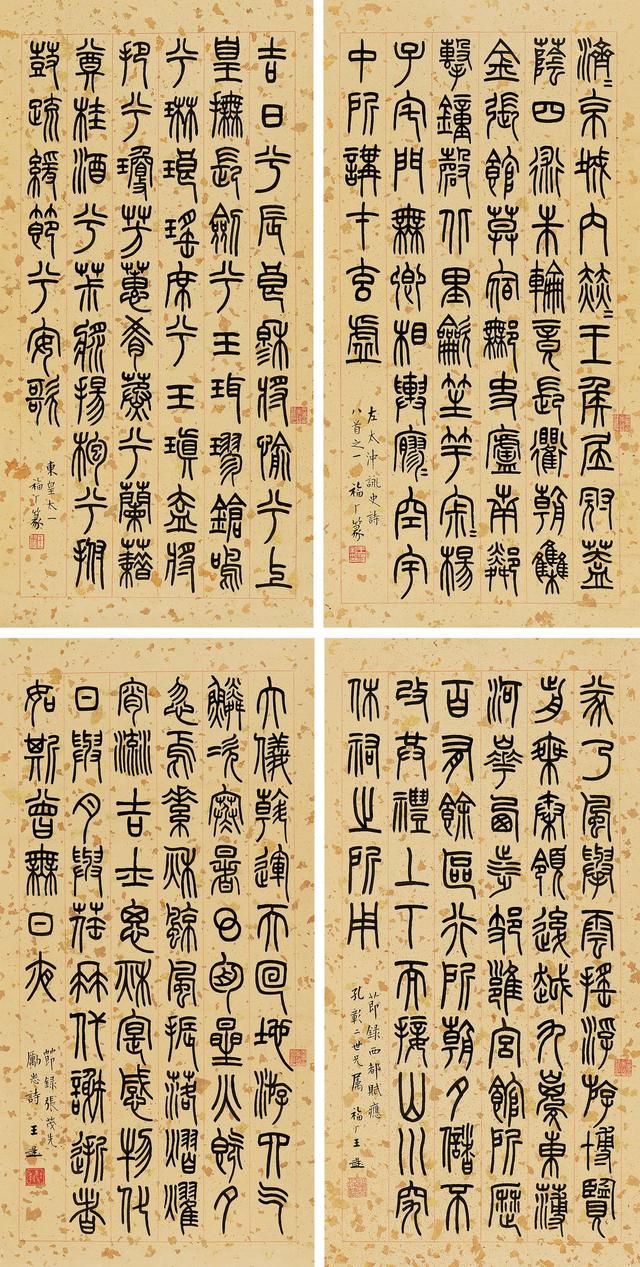 濟〻京城內赫〻王侯居冠蓋
蔭四術朱輪竟長衢朝集
金張館莫宿鄦史廬南鄰
擊鐘磬北里龡笙竽宋〻楊
子宅門無卿相輿寥〻空宇
中所講在玄虛
左太沖詠史詩
八首之一 福厂篆
吉日兮辰良穆將愉兮上
皇撫長劍兮玉珥璆鎗鳴
兮琳琅瑤席兮玉瑱盍將
把兮瓊芳蕙肴蒸兮蘭藉
奠桂酒兮茮漿揚枹兮拊
鼓疏緩節兮安歌
東皇太一
福厂篆
遂乃風舉雲搖浮游博覽
前乘秦領後越九嵏東薄
河華西涉岐雍宮館所歷
百有餘區行所朝夕儲不
改共禮上下而接山川究
休祐之所用
節錄西都賦應
孔彰二世兄屬 福厂王禔
大儀斡運天回地游四气
鱗次寒暑環周星火既夕
忽焉素秋涼風振落熠燿
宵流吉士思秋寔感物化
日與月與荏苒代謝逝者
如斯曾無日夜
節錄張茂先
勵志詩 王禔